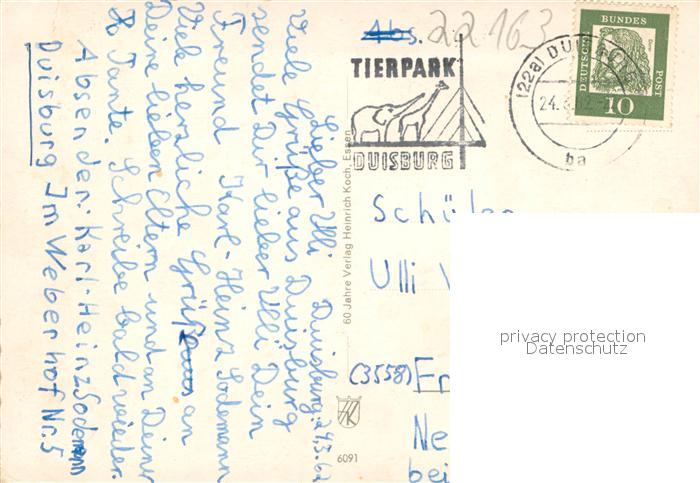 Duisburg, 24.3.62
Lieber Ulli
Viele Grüße aus Duisburg
sendet Dir lieber Ulli Dein
Freund Karl-Heinz Sodemann
Viele herzliche Grüße an
Deine lieben Eltern und an Deiner
Tante. Schreibe bald wieder.
Absender: Karl-Heinz Sodemann
Duisburg Im Weberhof Nr. 5
60 Jahre Verlag Heinrich Koch, Essen
Abs. 22 163
TIERPARK
DUISBURG
(22a) DUISBURG
ba
DEUTSCHE
BUNDES
POST
10
Schüler
Ulli
(3558)
Ne
bei
HK
6091
privacy protection
Datenschutz